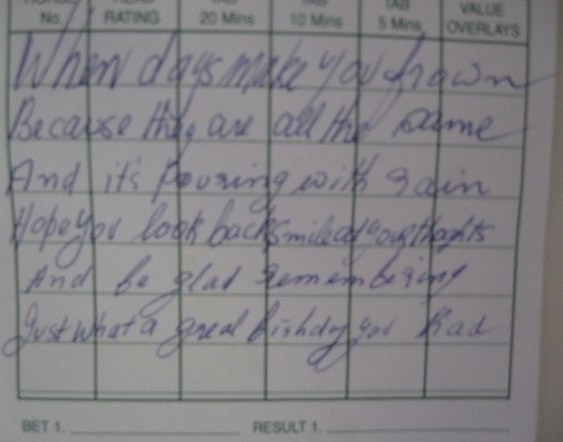 No. RATING 20 Mins 10 Mins 5 Mins VALUE OVERLAYS
When days make you frown
Because they are all the same
And it's Pouring with rain
Hope you look back smile at your thoghts
And be glad remembering
Just what a great Birthday you had
BET 1. RESULT 1.